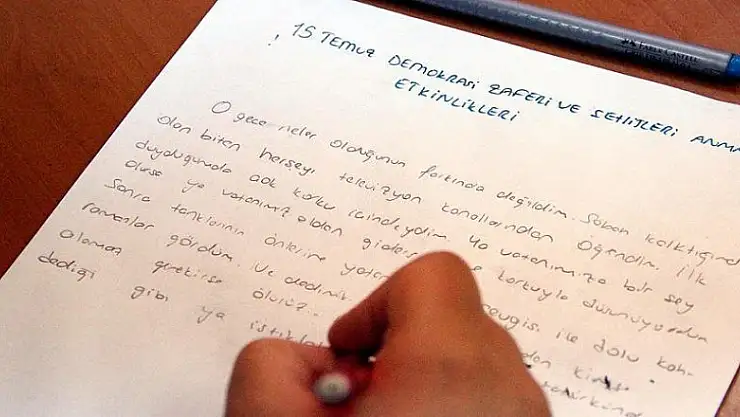 15 TEMUZ DEMOKRASİ ZAFERİ VE ŞEHİTLERİ ANMA
ETKİNLİKLERİ
O gece neler olduğunun farkında değildim. Sabah kalktığımda
olan biten herşeyi televizyon kanallarından öğrendim. İlk
duyduğumda çok korku içindeydim. Ya vatanımıza bir şey
olursa ya vatanımız elden giderse korkuyla düşünüyordum
Sonra tankların önlerine yatan sevgisi ile dolu kah-
ramanlar gördüm. Ve dedimki
alamaz gerekirse ölürüz. kimse
dediği gibi ya istiklal Atatürkünde
FABER-CASTELL